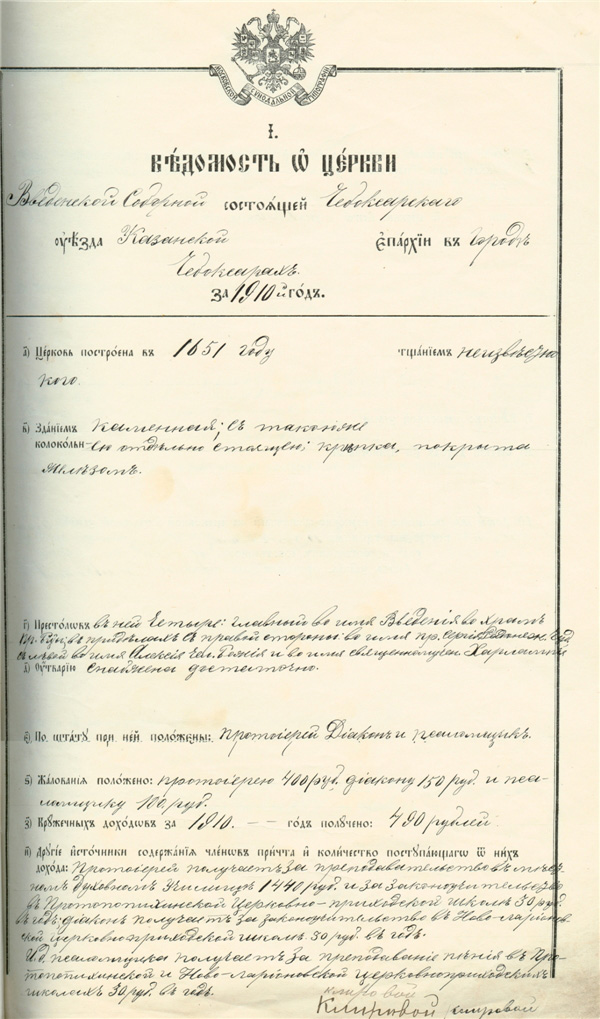 МОСКОВСКОЙ СѴНОДАЛЬНОЙ ТИПОГРАФІИ
І.
ВѢДОМОСТЬ Ѡ ЦЕ́РКВИ
Введенской Соборной состоѧщей Чебоксарскаго
оуѣзда Казанской єпархїи въ Городѣ
Чебоксарахъ
за 1910 й годъ.
а҃) Церковь построена въ 1651 году тщанїемъ неизвѣстно
кого.
в҃) Зданїемъ каменная, съ таковою же
колокольнею отдѣльно стоящею; крѣпка, покрыта
желѣзомъ.
г҃) Престолѡвъ въ ней Четыре: главный во имя Введенія во храмъ
Пр. Б-цы; въ придѣлахъ съ правой стороны во имя пр. Сергія Радонеж. Чуд.
съ лѣвой во имя Алексія Чел. Божія и во имя священномучен. Харлампія
д҃) Оутварїю снабжена достаточно.
є҃) По штату при ней положены: протоіерей Діаконъ и псаломщикъ.
ѕ҃) Жалованїя положено: протоіерею 400 руб. діакону 150 руб. и пса-
ломщику 100 руб.
з҃) Кружечныхъ доходѡвъ за 1910. — — годъ получено: 490 рублей
и҃) Другїе источники содержанїя членѡвъ причта и количество поступающагѡ ѿ нихъ
дохода: Протоіерей получаетъ за преподавательство въ мѣст-
номъ Духовномъ Училищѣ 1440 руб. и за законоучительство
въ Протопопихинской Церковно-приходской школѣ 30 руб.
въ годъ; діаконъ получаетъ за законоучительство въ Ново-Ларіонов-
ской церковно приходской школѣ 30 руб. въ годъ.
И. д. псаломщика получаетъ за преподаваніе пѣнія въ Про-
топопихинской и Ново-Ларіоновской церковноприходскихъ
школахъ 30 руб. въ годъ.
клировой
Клировой клировой